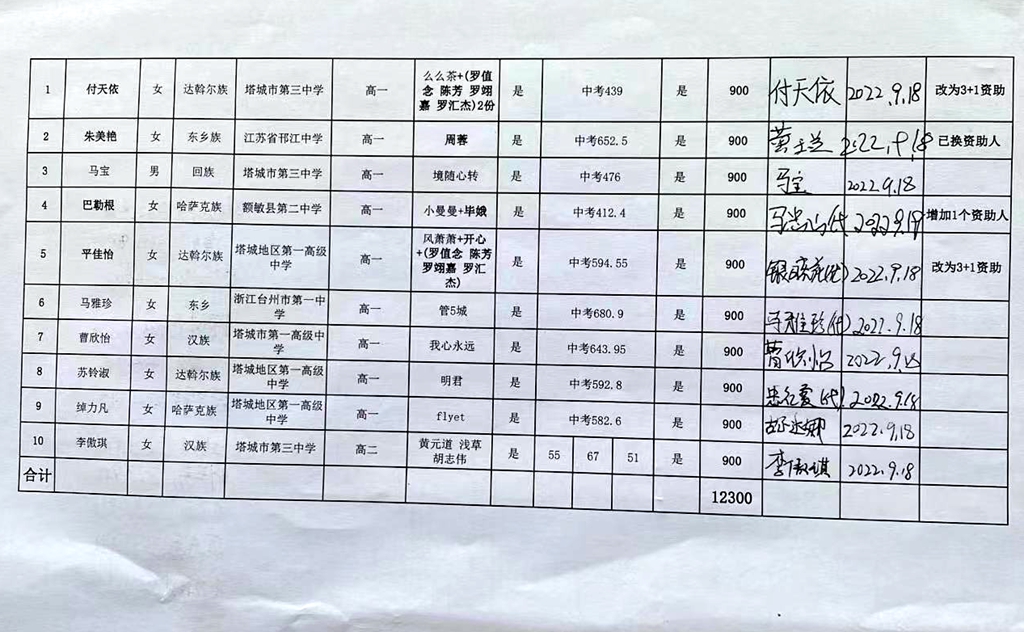 1 付天依 女 达斡尔族 塔城市第三中学 高一 么么茶+(罗值念 陈芳 罗翊嘉 罗汇杰)2份 是 中考439 是 900 付天依 2022.9.18 改为3+1资助
2 朱美艳 女 东乡族 江苏省邗江中学 高一 周蓉 是 中考652.5 是 900 2022.9.18 已换资助人
3 马宝 男 回族 塔城市第三中学 高一 境随心转 是 中考476 是 900 马宝 2022.9.18
4 巴勒根 女 哈萨克族 额敏县第二中学 高一 小曼曼+毕娥 是 中考412.4 是 900 2022.9.18 增加1个资助人
5 平佳怡 女 达斡尔族 塔城地区第一高级中学 高一 风萧萧+开心+(罗值念 陈芳 罗翊嘉 罗汇杰) 是 中考594.55 是 900 2022.9.18 改为3+1资助
6 马雅珍 女 东乡 浙江台州市第一中学 高一 管5城 是 中考680.9 是 900 马雅珍(代) 2022.9.18
7 曹欣怡 女 汉族 塔城市第一高级中学 高一 我心永远 是 中考643.95 是 900 曹欣怡 2022.9.18
8 苏铃淑 女 达斡尔族 塔城地区第一高级中学 高一 明君 是 中考592.8 是 900 2022.9.18
9 绰力凡 女 哈萨克族 塔城地区第一高级中学 高一 flyet 是 中考582.6 是 900 2022.9.18
10 李傲琪 女 汉族 塔城市第三中学 高二 黄元道 浅草 胡志伟 是 55 67 51 是 900 李傲琪 2022.9.18
合计 12300